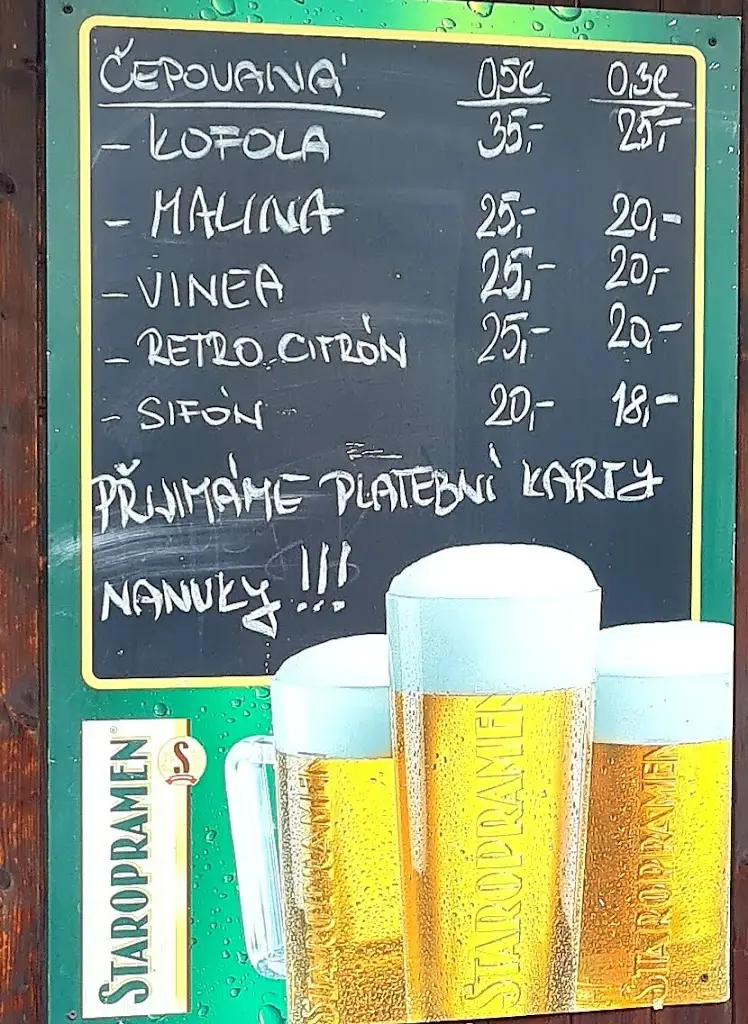 ČEPOVANÁ 0,5l 0,3l
- KOFOLA 35,- 25,-
- MALINA 25,- 20,-
- VINEA 25,- 20,-
- RETRO CITRÓN 25,- 20,-
- SIFÓN 20,- 18,-
PŘIJIMÁME PLATEBNÍ KARTY
NANUKY !!!
STAROPRAMEN
S
STAROPRAMEN
STAROPRAMEN
STAROPRAMEN